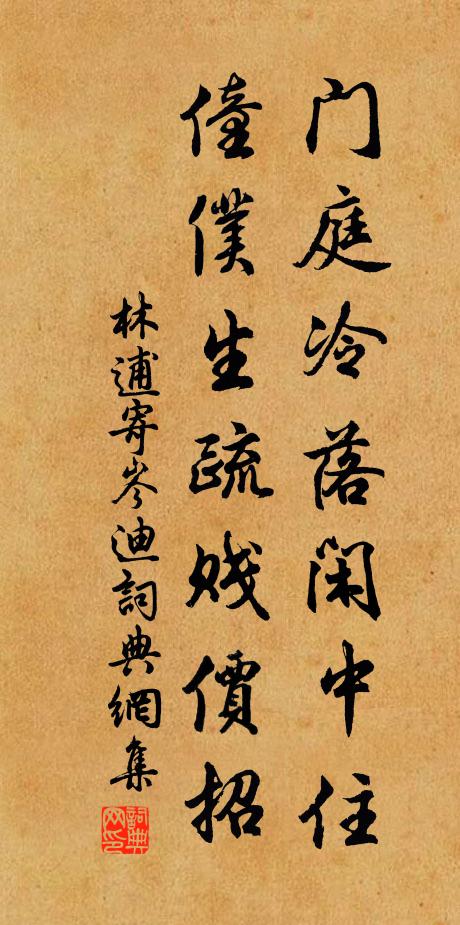 門庭冷落閑中住
僮僕生疏賤價招
林逋寄岑迪詞典網集
詞典网印